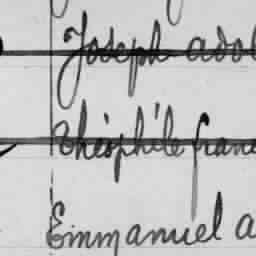 Joseph adol
Théophile franc
Emmanuel a